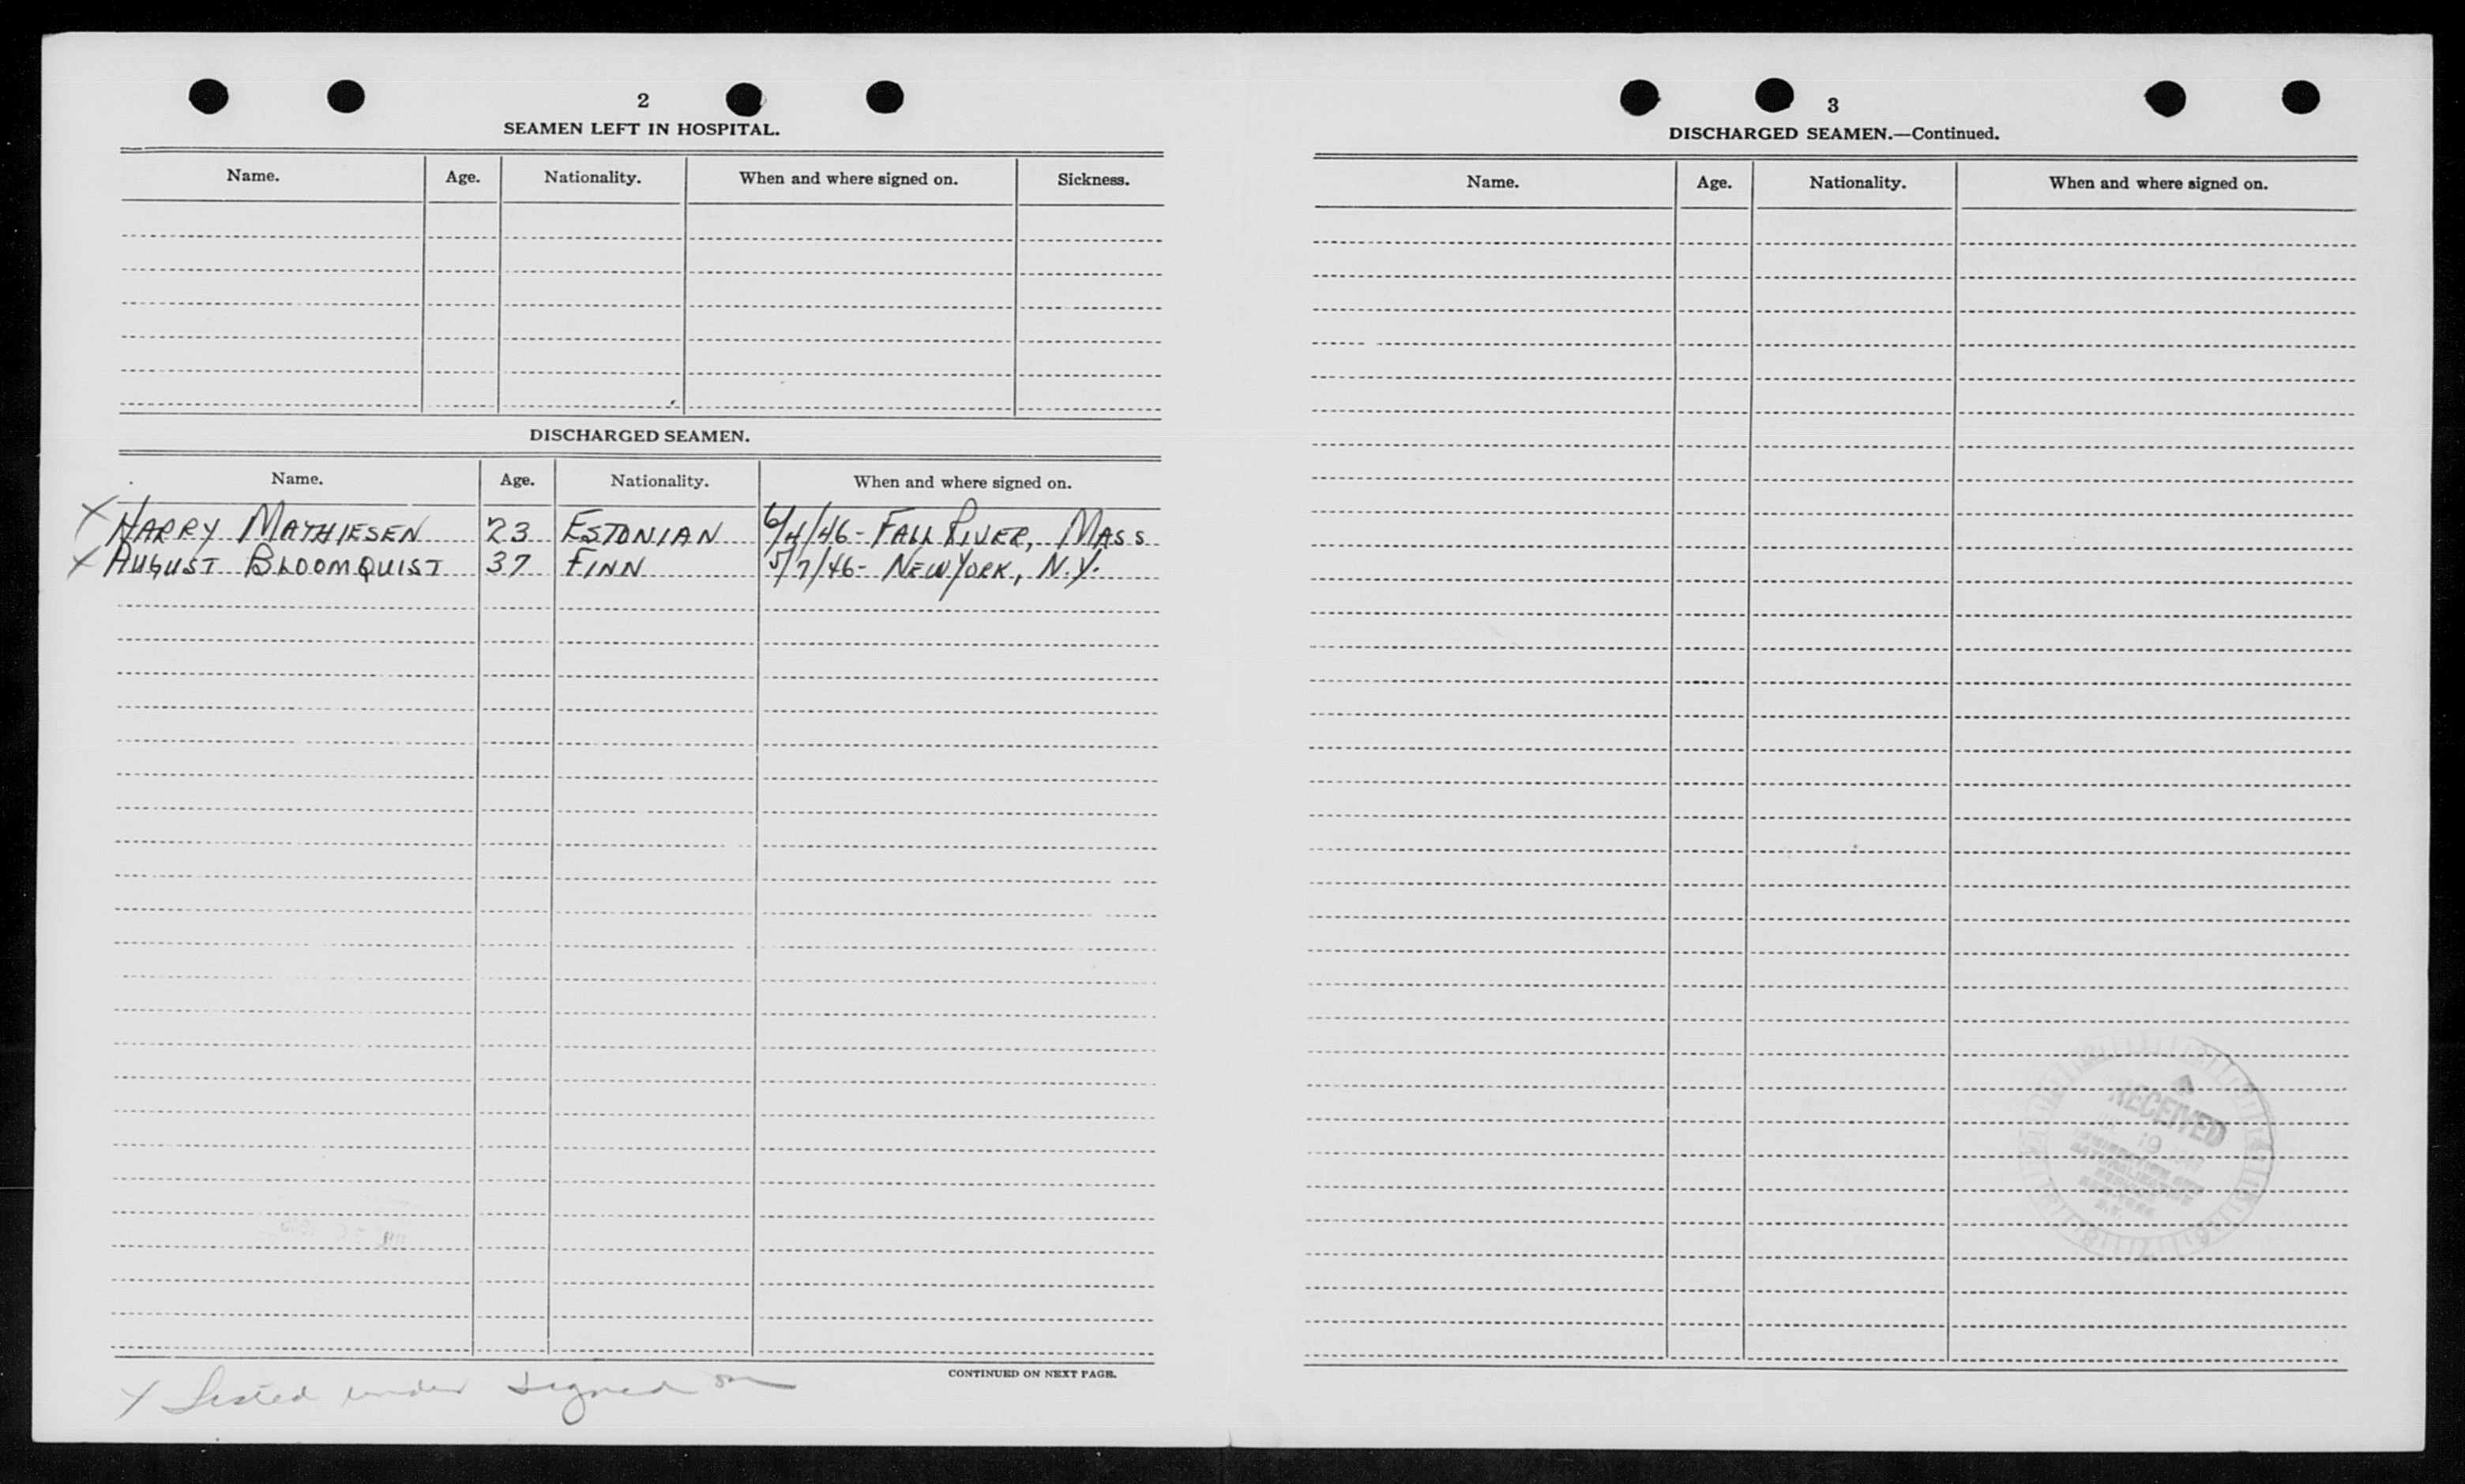 2
SEAMEN LEFT IN HOSPITAL.
Name. Age. Nationality. When and where signed on. Sickness.
DISCHARGED SEAMEN.
Name. Age. Nationality. When and where signed on.
X HARRY MATHIESEN 23 ESTONIAN 6/4/46 - FALL RIVER, MASS
X AUGUST BLOOMQUIST 37 FINN 5/7/46 - NEW YORK, N.Y.
CONTINUED ON NEXT PAGE.
X Listed under signed on
3
DISCHARGED SEAMEN.—Continued.
Name. Age. Nationality. When and where signed on.
RECEIVED
19
IMMIGRATION AND
NATURALIZATION
SERVICE
NEW YORK
N.Y.